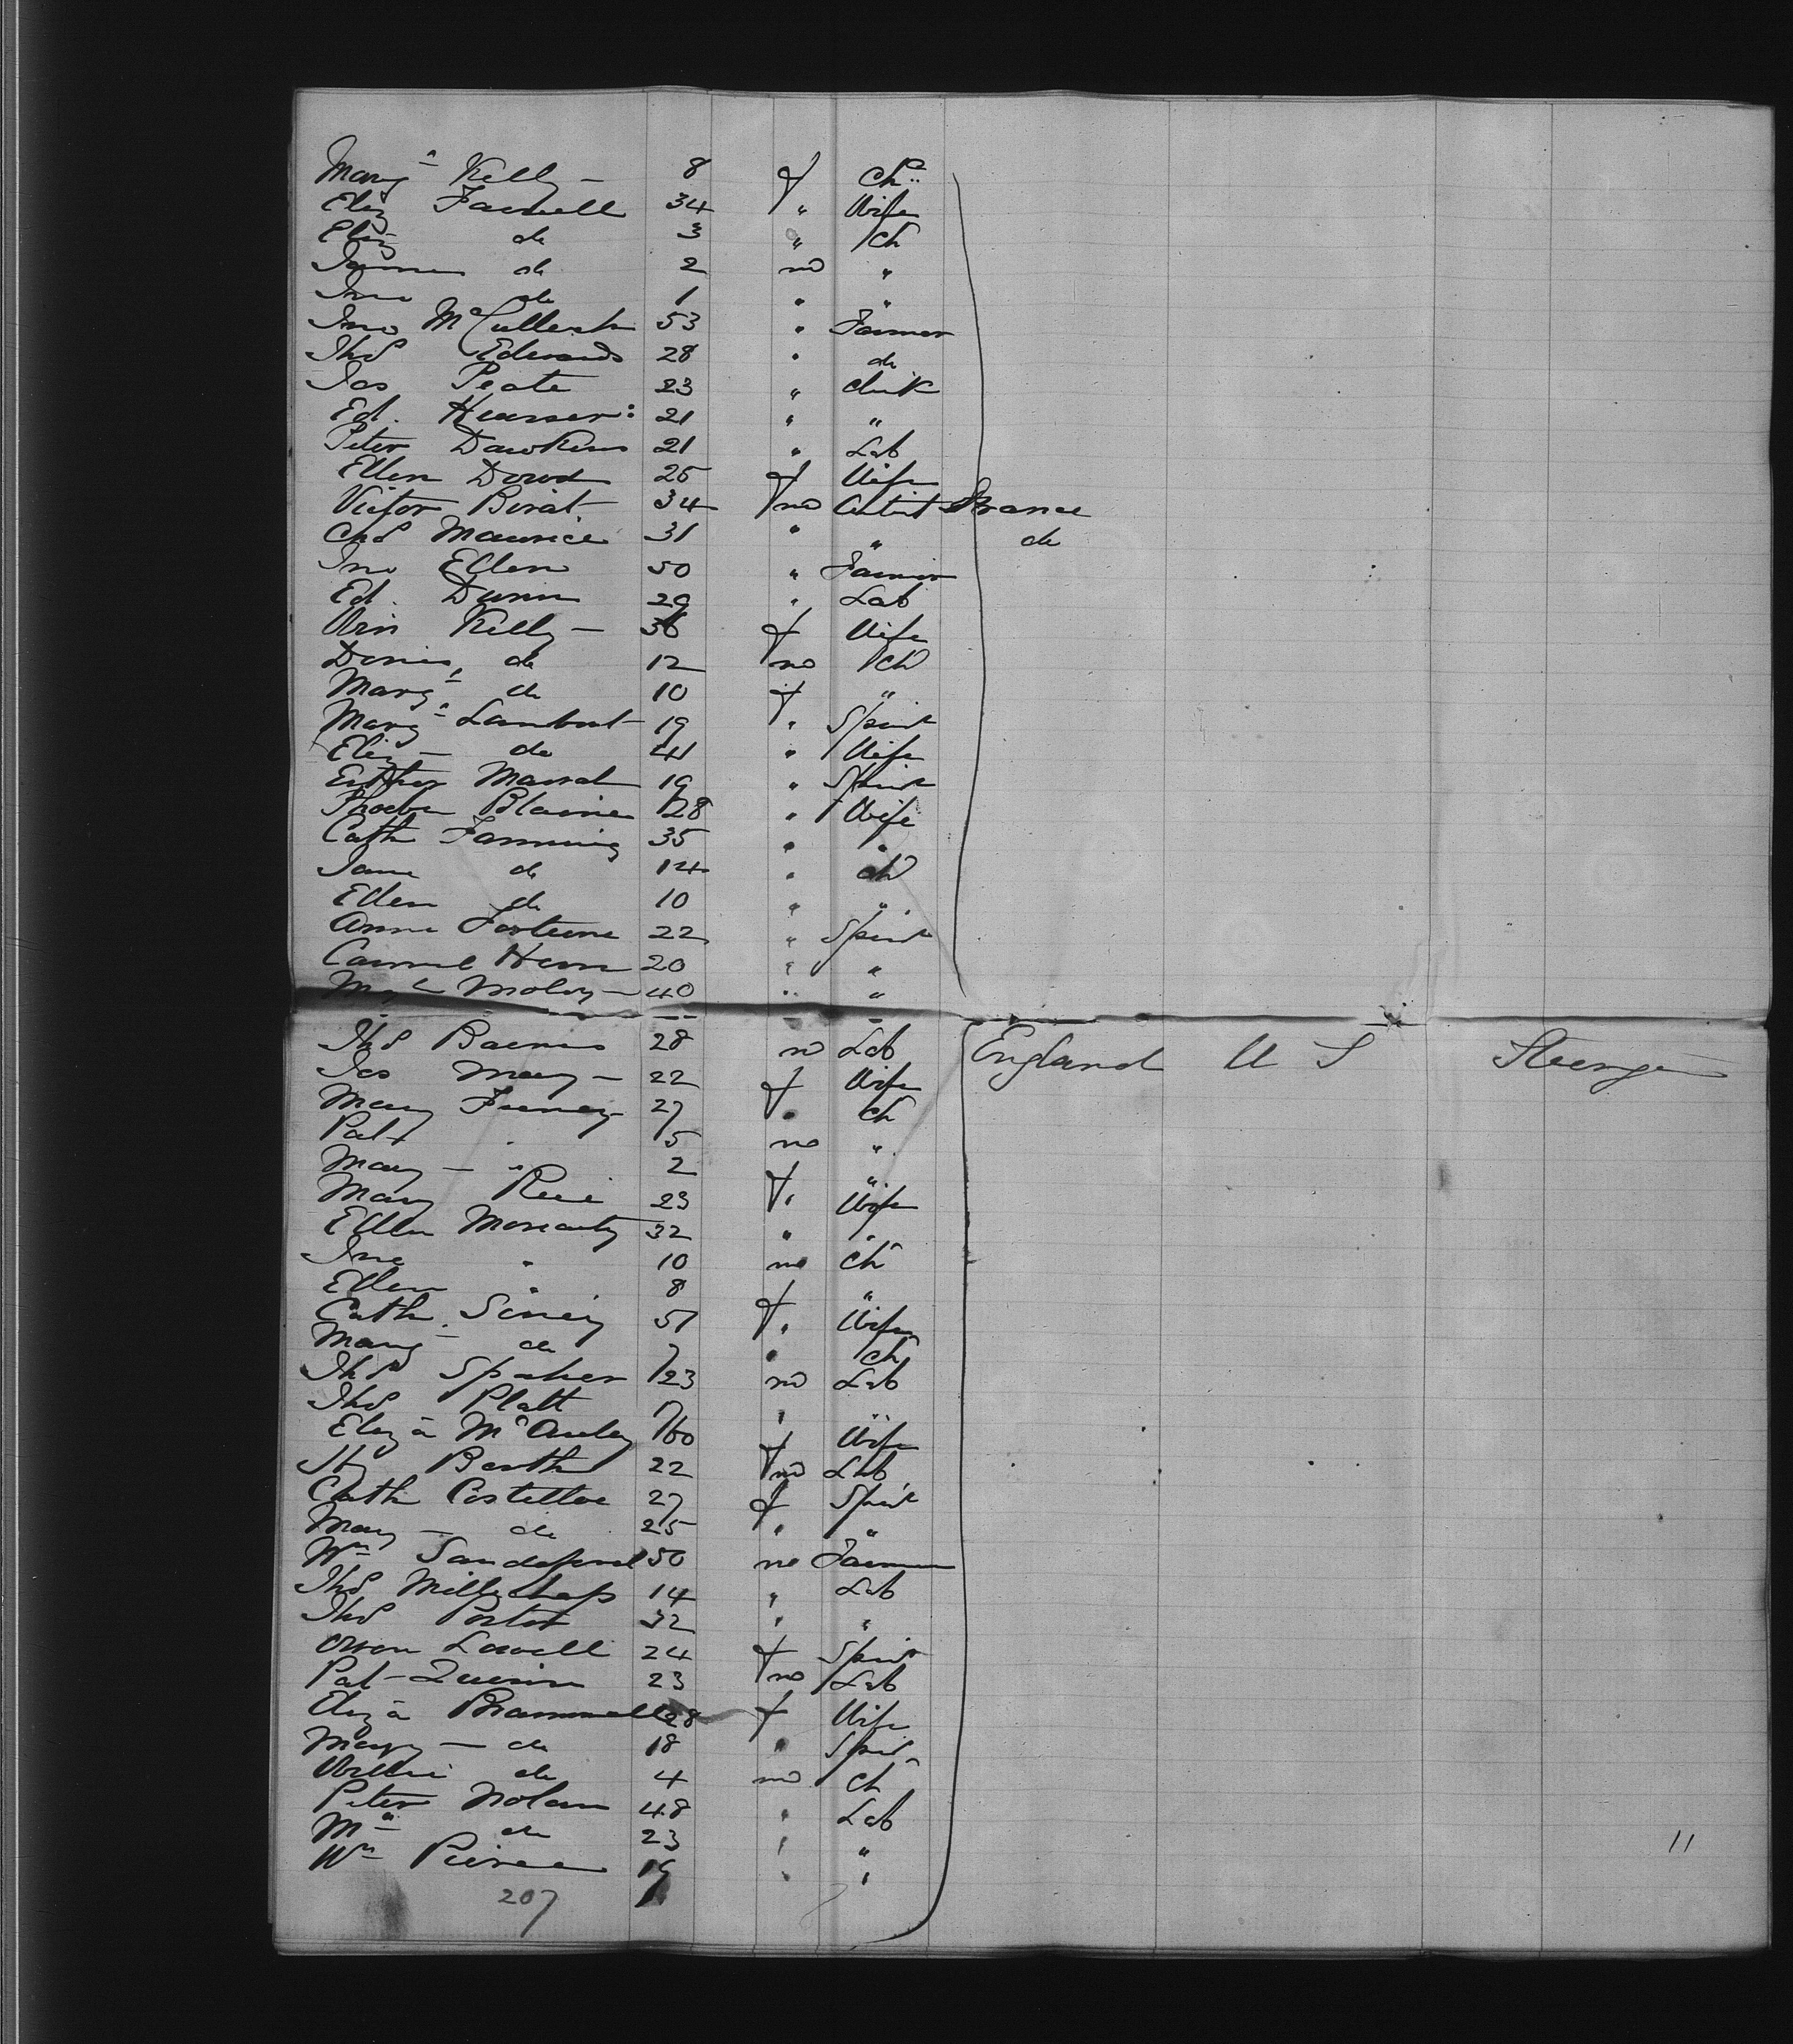 Marg^t Kelly — 8 f Ch^d
Eliz Farrell 34 " Wife
Eliz do 3 " Ch
James do 2 m "
Jno do 1 " "
Jno McCulloch 53 " Farmer
Thos Edwards 28 " do
Jas Peate 23 " Clerk
Ed. 21 " "
Peter Dawkins 21 " Lab
Ellen Dowd 25 f Wife
Victor Birat 34 m Artist France
Chs Maurice 31 " " do
Jno Ellen 50 " Farmer
Ed. Dunn 29 " Lab
Win Kelly — 36 f Wife
Denis do 12 m Ch
Marg^t do 10 f "
Marg^t Lambert 19 " Spins
Eliz — do 41 " Wife
Esther 19 " Spins
Phoebe Blaine 28 " Wife
Cath Fanning 35 " "
Jane do 14 " Ch
Ellen do 10 " "
Anne Fortune 22 " Spins
20 " "
Moloy — 40 " "
Thos Barnes 28 m Lab England U S Steerage
Jas May — 22 f Wife
Mary Furney 27 " Ch
Pat " 5 m "
Mary — " 2
Mary Rice 23 f " Wife
Ellen Moriarty 32 " "
Jno " 10 m Ch
Ellen " 8 "
Cath. 51 f Wife
Marg do 7 " Ch
Thos 23 m Lab
Thos Platt " "
Eliza McAuley 60 f Wife
Hy Barth 22 m Lab
Cath Costelloe 27 f Spins
Mary — do 25 " "
Wm 50 m Farmer
Thos Millichap 14 " Lab
Thos Porter 32 " "
Lovell 24 f Spins
Pat Quinn 23 m Lab
Eliza Brammell 28 f Wife
Mary — do 18 " Spins
Willie do 4 m Ch
Peter Nolan 48 " Lab
M do 23 " "
Wm Pierce 19 " "
207
11